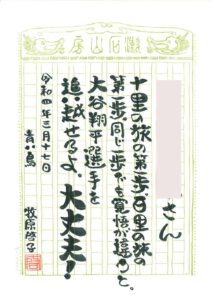 漱石山房
さん
十里の旅の第一歩、百里の旅の
第一歩、同じ一歩でも覚悟が違うと。
大谷翔平選手を
追い越せるよ。大丈夫!
令和四年三月十七日
青い鳥
牧原啓子